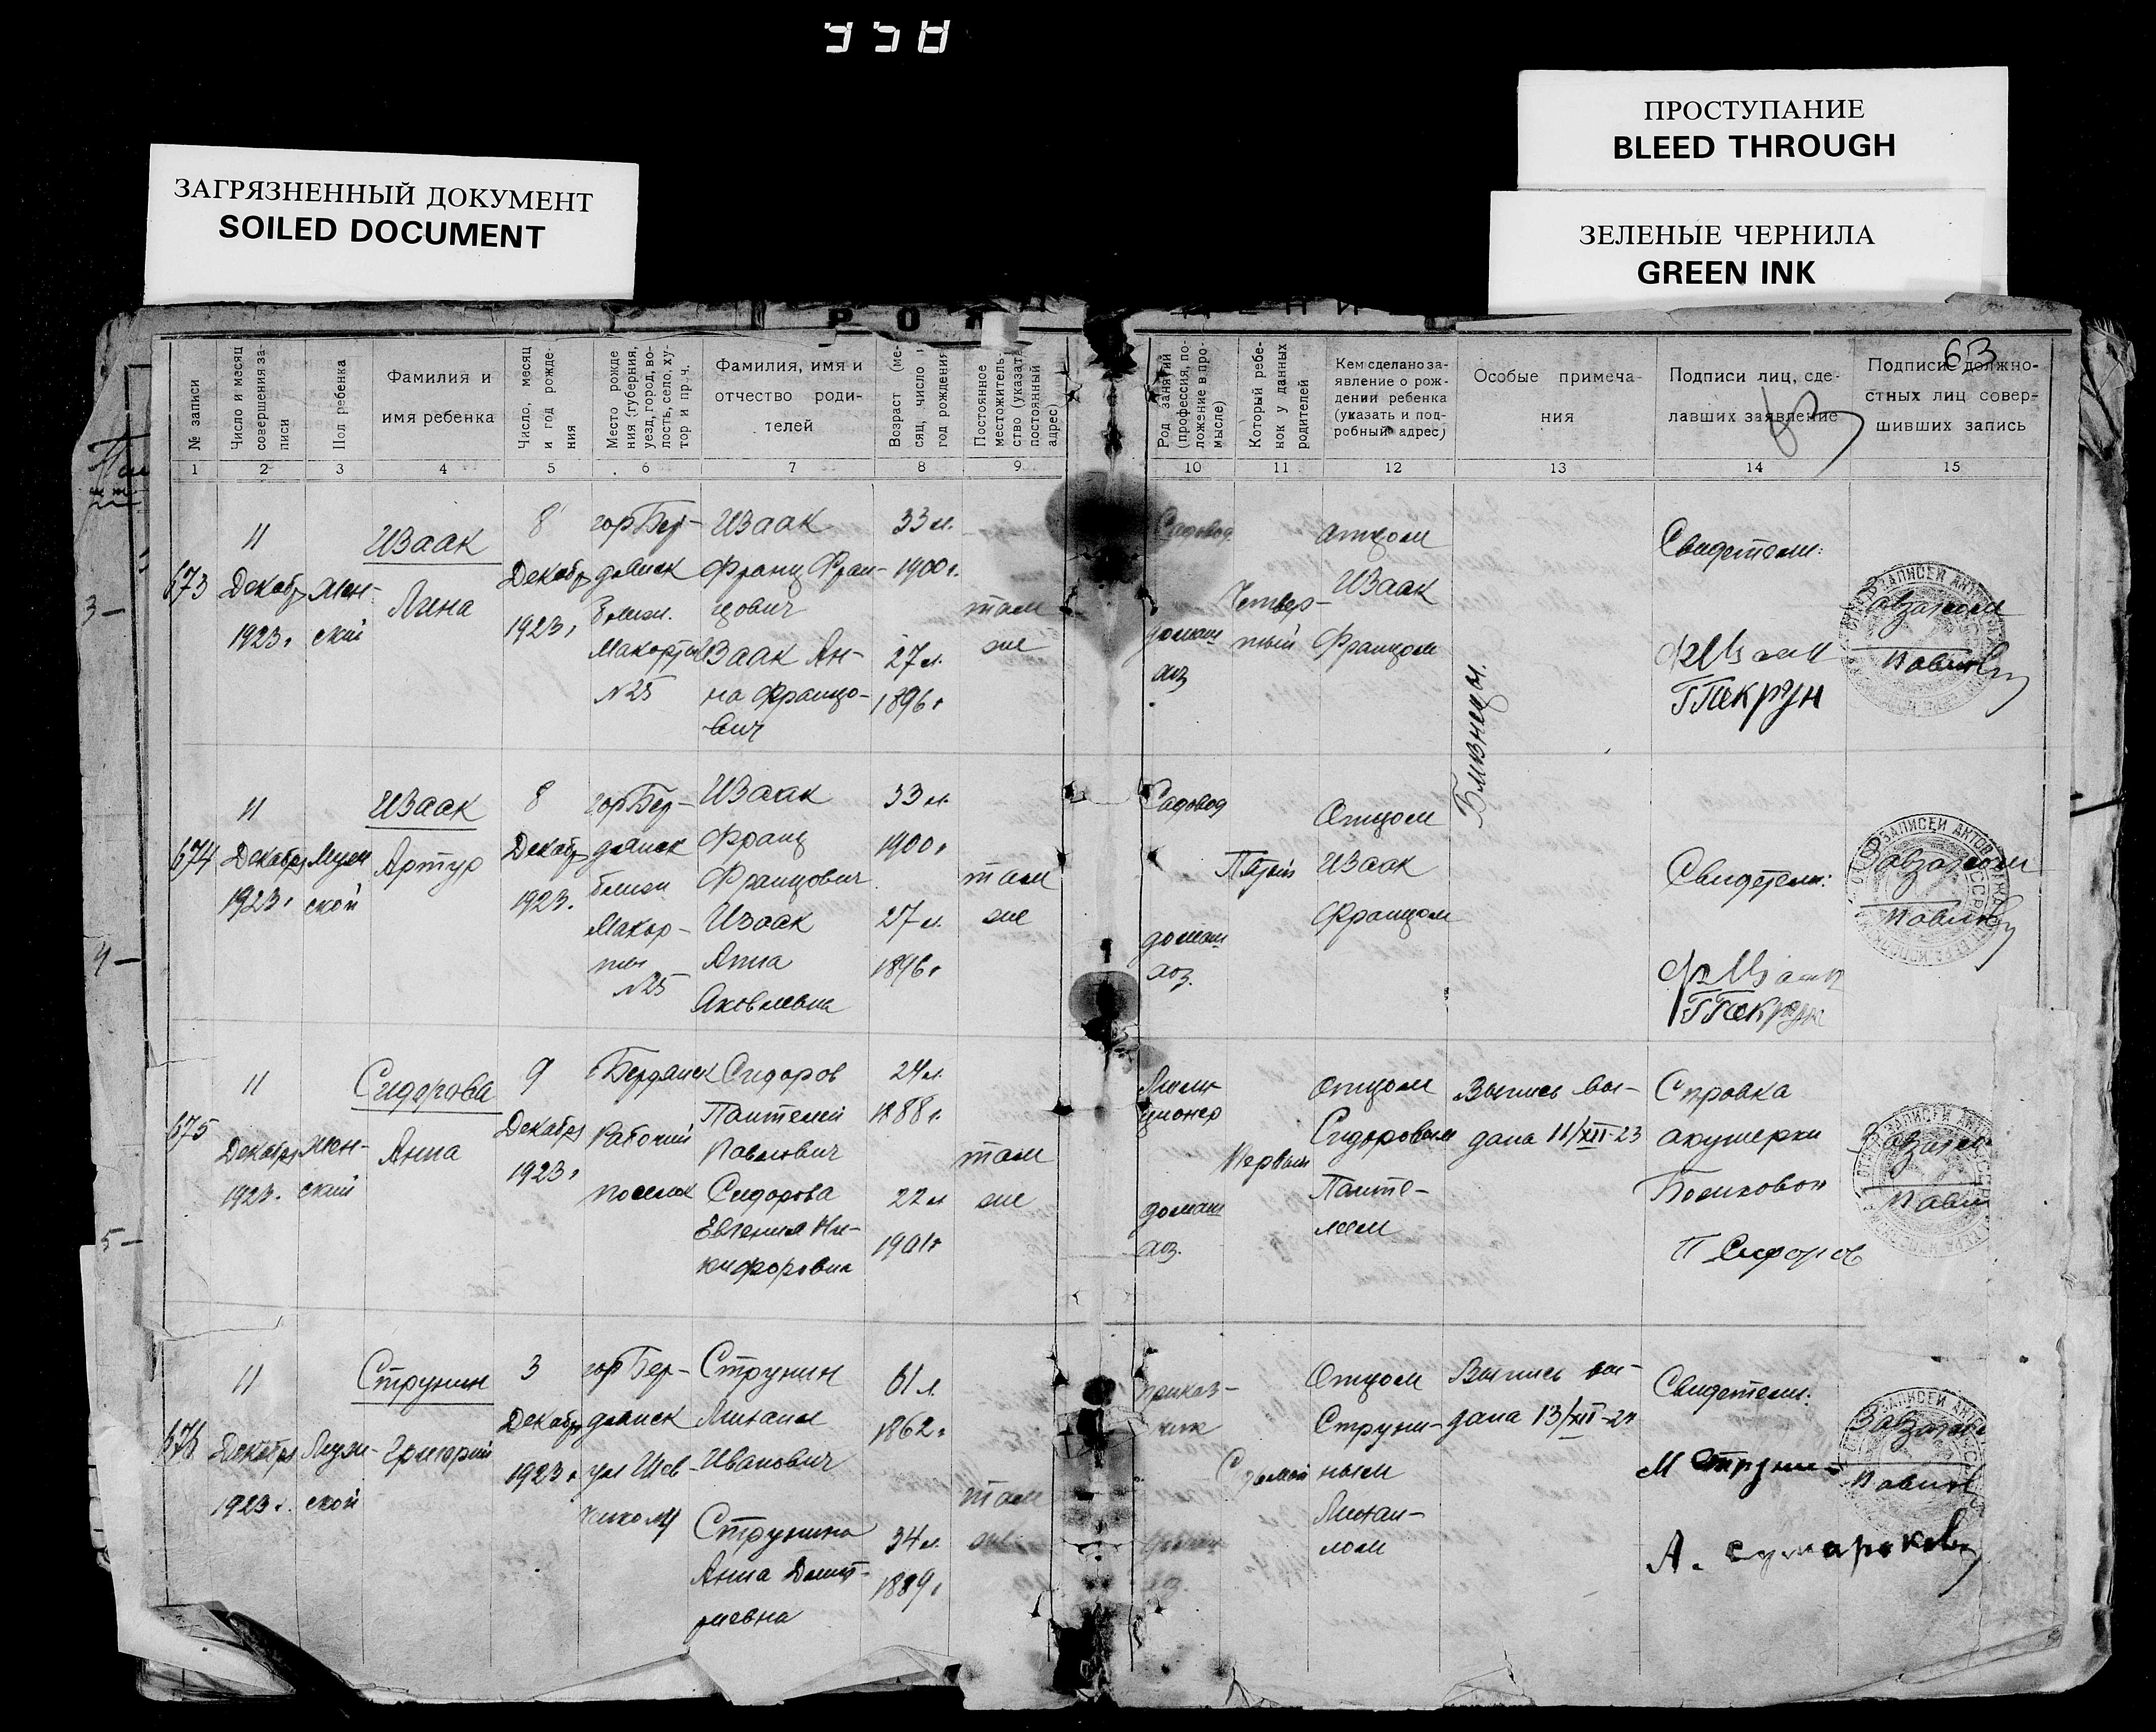 558
ЗАГРЯЗНЕННЫЙ ДОКУМЕНТ
SOILED DOCUMENT
ПРОСТУПАНИЕ
BLEED THROUGH
ЗЕЛЕНЫЕ ЧЕРНИЛА
GREEN INK
63
№ записи
Число и месяц
совершения за-
писи
Пол ребенка
Фамилия и
имя ребенка
Число, месяц
и год рожде-
ния
Место рожде
ния (губерния,
уезд, город, во-
лость, село, ху-
тор и пр. ч.
Фамилия, имя и
отчество роди-
телей
Возраст (ме-
сяц, число и
год рождения
Постоянное
местожитель
ство (указать
постоянный
адрес)
Род занятий
(профессия, по-
ложение в про-
мысле)
Который ребе-
нок у данных
родителей
Кем сделано за-
явление о рож-
дении ребенка
(указать и под-
робный адрес)
Особые примеча-
ния
Подписи лиц, сде-
лавших заявление
Подписи должно-
стных лиц совер-
шивших запись
1 2 3 4 5 6 7 8 9 10 11 12 13 14 15
673
11
Декабр
1923г
Жен-
ский
Изаак
Лина
8
Декабр
1923г
гор Бер-
дянск
№25
Изаак
Франц Фран-
цович
Изаак Ан-
на Францо-
вич
33 л.
1900г.
27 л.
1896г
там
же
Садовод
домаш
хоз
Четвер-
тый
Отцом
Изаак
Францом
Близнецы.
Свидетели:
Завзагсом
674
11
Декабря
1923г
Муж
ской
Изаак
Артур
8
Декабр
1923.
гор Бер-
дянск
№25
Изаак
Франц
Францович
Изаак
Анна
Яковлевна
33 л.
1900г
27 л.
1896г
там
же
Садовод
домаш
хоз.
Пятый
Отцом
Изаак
Францом
Свидетели:
Завзагсом
675
11
Декабря
1923.
Жен-
ский
Сидорова
Анна
9
Декабря
1923г
Бердянск
Рабочий
поселок
Сидоров
Пантелей
Павлович
Сидорова
Евгения Ни-
кифоровна
24 л.
1888г.
22 л
1901г
там
же
Мили-
ционер
домаш
хоз.
Первый
Отцом
Сидоровым
Панте-
леем
Выпись вы-
дана 11/XII-23
Справка
акушерки
П Сидоров
676
11
Декабря
1923г.
Муж-
ской
Струнин
Григорий
3
Декабр
1923г
гор Бер-
дянск
ул Шев-
Струнин
Михаил
Иванович
Струнина
Анна Дмит-
риевна
61 л.
1862г
34 л.
1889г
там
же
приказ-
чик
Отцом
Струни-
ным
Михаи-
лом
Выпись вы-
дана 13/XII-24
Свидетели:
М Струнин
А. Сумароков